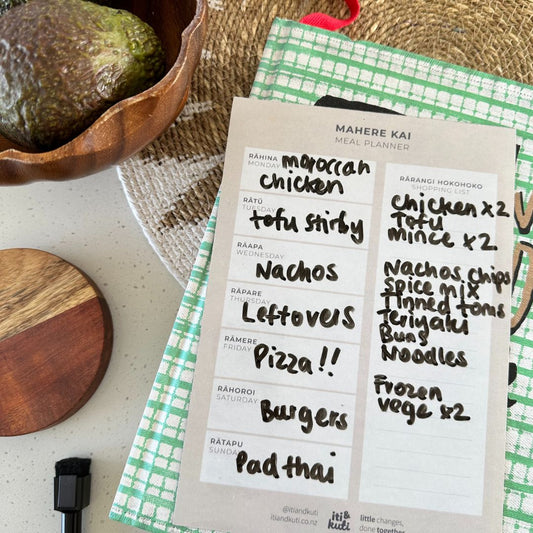 MAHERE KAI
MEAL PLANNER
RĀHINA
MONDAY
moroccan
chicken
RĀTŪ
TUESDAY
tofu stirby
RĀAPA
WEDNESDAY
Nachos
RĀPARE
THURSDAY
Leftovers
RĀMERE
FRIDAY
Pizza!!
RĀHOROI
SATURDAY
Burgers
RĀTAPU
SUNDAY
Pad thai
RĀRANGI HOKOHOKO
SHOPPING LIST
Chicken x2
Tofu
mince x2
Nachos chips
Spice mix
Tinned toms
Teriyaki
Buns
Noodles
Frozen
vege x2
@itiandkuti
itiandkuti.co.nz
iti&
kuti
little changes,
done together